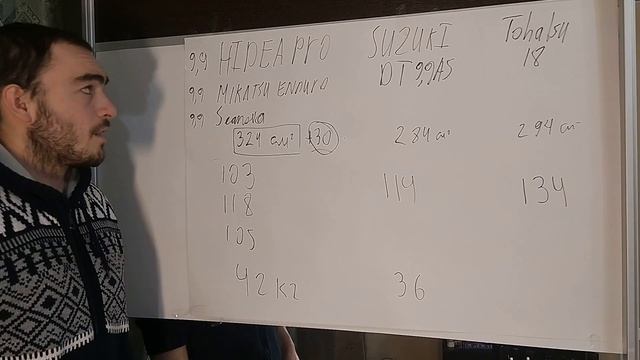 9,9 HIDEA PRO SUZUKI Tohatsu
DT 9,9AS 18
9,9 MIKATSU ENDURO
9,9 Seanovo
324 см³ +30 284 см³ 294 см³
103
118 114 134
105
42 кг 36